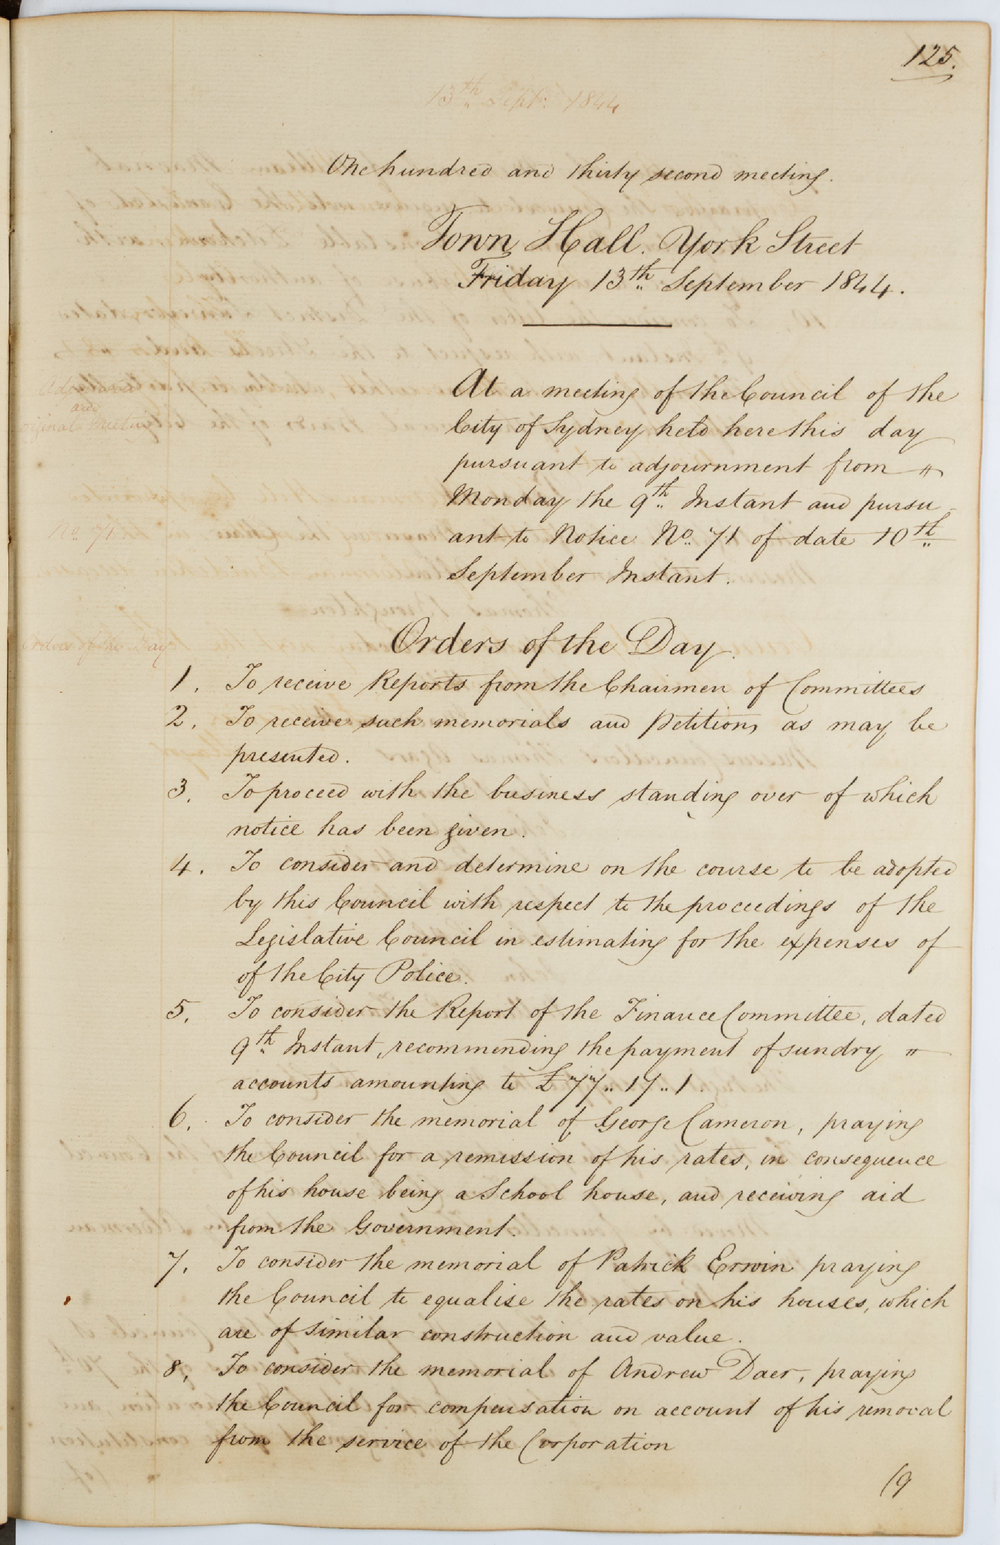 125.
13th Sept. 1844
One hundred and thirty second meeting.
Town Hall. York Street
Friday 13th September 1844.
At a meeting of the Council of the
City of Sydney held here this day
pursuant to adjournment from "
Monday the 9th Instant and pursu-
ant to Notice No. 71 of date 10th
September Instant.
Adjourned
and
Original Meeting
No. 71
Orders of the Day
Orders of the Day.
1. To receive Reports from the Chairmen of Committees
2. To receive such memorials and Petitions as may be
presented.
3. To proceed with the business standing over of which
notice has been given.
4. To consider and determine on the course to be adopted
by this Council with respect to the proceedings of the
Legislative Council in estimating for the expenses of
of the City Police.
5. To consider the Report of the Finance Committee, dated
9th Instant, recommending the payment of sundry "
accounts amounting to £77..17..1.
6. To consider the memorial of George Cameron, praying
the Council for a remission of his rates, in consequence
of his house being a School house, and receiving aid
from the Government.
7. To consider the memorial of Patrick Erwin praying
the Council to equalise the rates on his houses, which
are of similar construction and value.
8. To consider the memorial of Andrew Daer, praying
the Council for compensation on account of his removal
from the service of the Corporation
(9